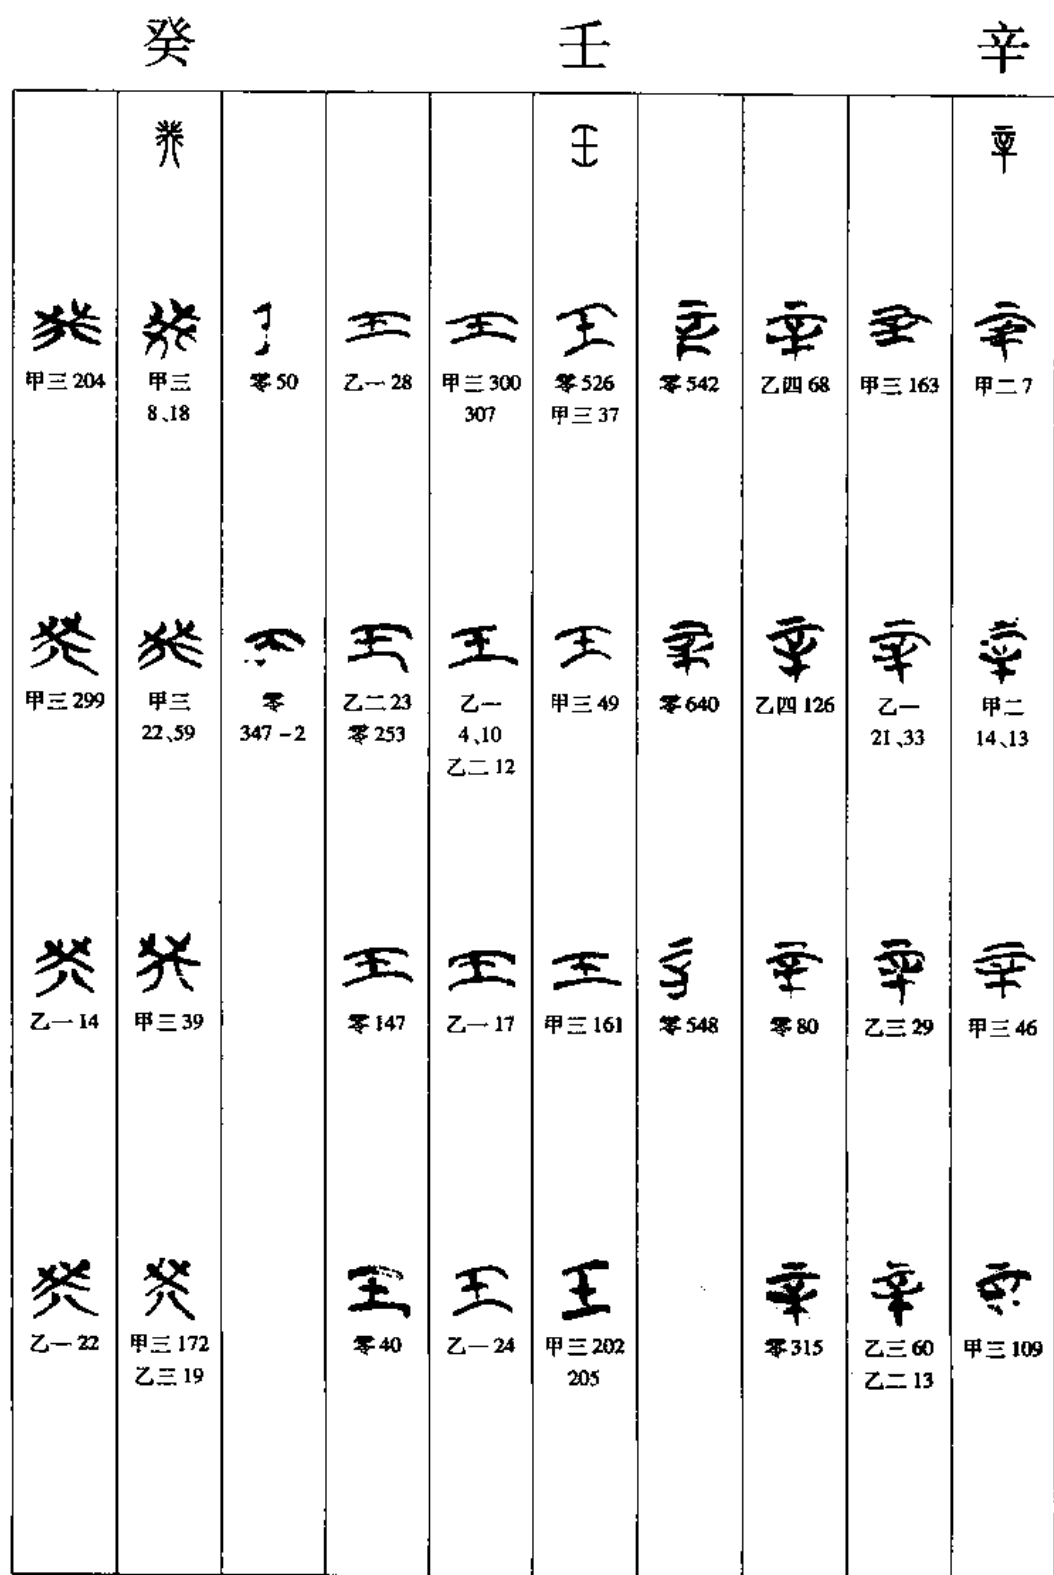 辛
甲二 7
甲二
14、13
甲三 46
甲三 109
甲三 163
乙一
21、33
乙三 29
乙三 60
乙二 13
乙四 68
乙四 126
零 80
零 315
零 542
零 640
零 548
壬
零 526
甲三 37
甲三 49
甲三 161
甲三 202
205
甲三 300
307
乙一
4、10
乙二 12
乙一 17
乙一 24
乙一 28
乙二 23
零 253
零 147
零 40
零 50
零
347-2
癸
甲三
8、18
甲三
22、59
甲三 39
甲三 172
乙三 19
甲三 204
甲三 299
乙一 14
乙一 22